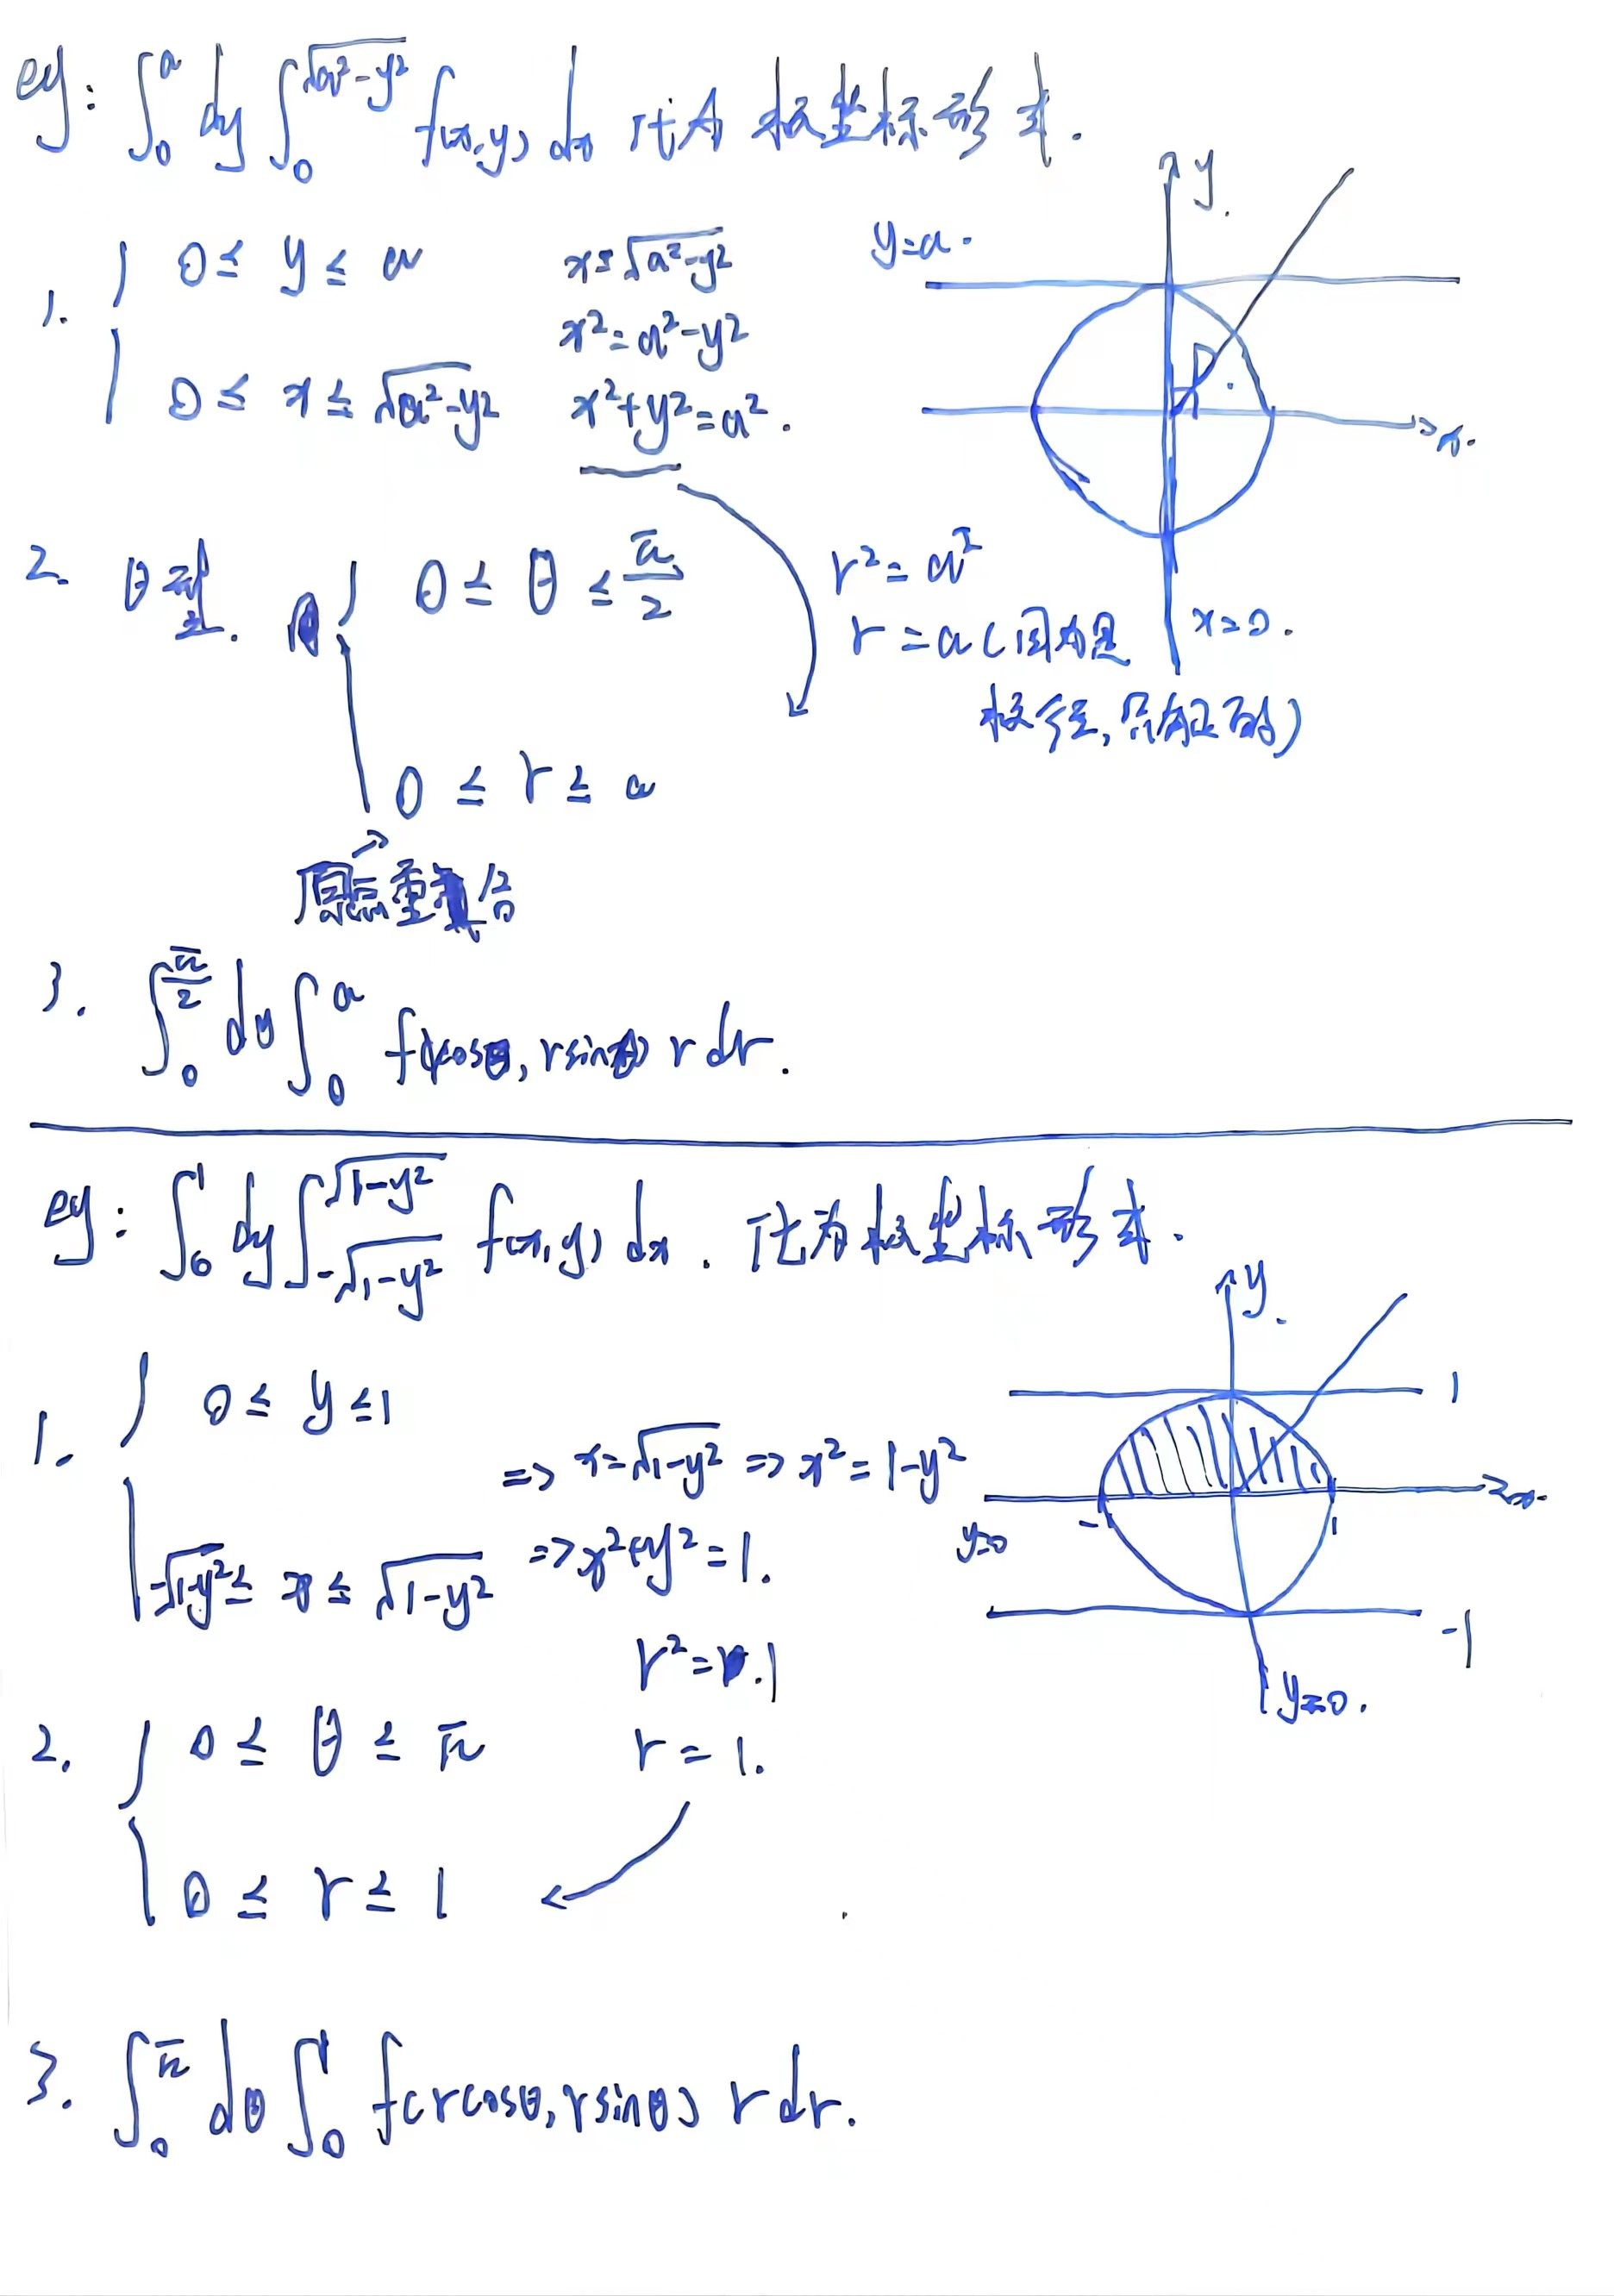 eg: ∫₀ᵃ dy ∫₀^√(a²-y²) f(x,y) dx 化为 极坐标形式.
1. { 0 ≤ y ≤ a
0 ≤ x ≤ √(a²-y²)
x=√(a²-y²)
x²=a²-y²
x²+y²=a².
y=a.
y.
D
x.
x=0.
2. θ型. { 0 ≤ θ ≤ π/2
0 ≤ r ≤ a
原点重合
r²=a²
r=a(因为是
极径,只有正的)
3. ∫₀^(π/2) dθ ∫₀ᵃ f(rcosθ, rsinθ) r dr.
eg: ∫₀¹ dy ∫_(-√(1-y²))^(√(1-y²)) f(x,y) dx. 化为极坐标形式.
1. { 0 ≤ y ≤ 1
-√(1-y²) ≤ x ≤ √(1-y²)
=> x=√(1-y²) => x²=1-y²
=> x²+y²=1.
r²=1
r=1.
y.
1
x.
y=0
-1
1
-1
y=0.
2. { 0 ≤ θ ≤ π
0 ≤ r ≤ 1
3. ∫₀^π dθ ∫₀¹ f(rcosθ, rsinθ) r dr.